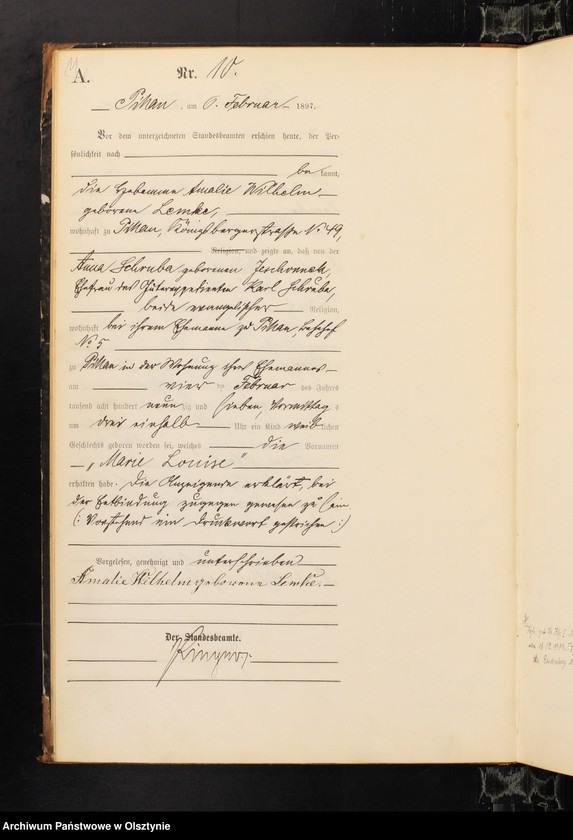 A.
Nr. 10.
Pillau, am 6. Februar 1897.
Vor dem unterzeichneten Standesbeamten erschien heute, der Per-
sönlichkeit nach
bekannt,
die Hebamme Amalie Wilhelm
geborene Lemke,
wohnhaft zu Pillau, Königsbergerstraße No 49,
Religion, und zeigte an, daß von der
Anna Schruba geborenen Jeschonnek,
Ehefrau des Karl Schruba,
beide evangelischer Religion,
wohnhaft bei ihrem Ehemanne zu Pillau, Bahnhof
No 5
zu Pillau in der Wohnung ihres Ehemannes
am vier ten Februar des Jahres
tausend acht hundert neunzig und sieben, Vormittags
um drei einhalb Uhr ein Kind weiblichen
Geschlechts geboren worden sei, welches die Vornamen
„Marie Louise"
erhalten habe. Die Anzeigende erklärt, bei
der Entbindung zugegen gewesen zu sein
(: Vorstehend ein Druckwort gestrichen :)
Vorgelesen, genehmigt und unterschrieben
Amalie Wilhelm geborene Lemke.
Der Standesbeamte.
Archiwum Państwowe w Olsztynie